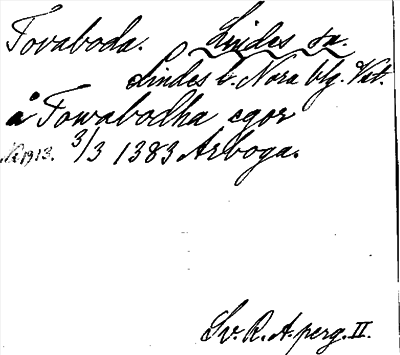 Tovaboda. Lindes sn.
Lindes o. Nora blg. Vstm.
å Towabodha egor
NR 1913. 3/3 1383 Arboga.
Sv. R. A. perg. II.